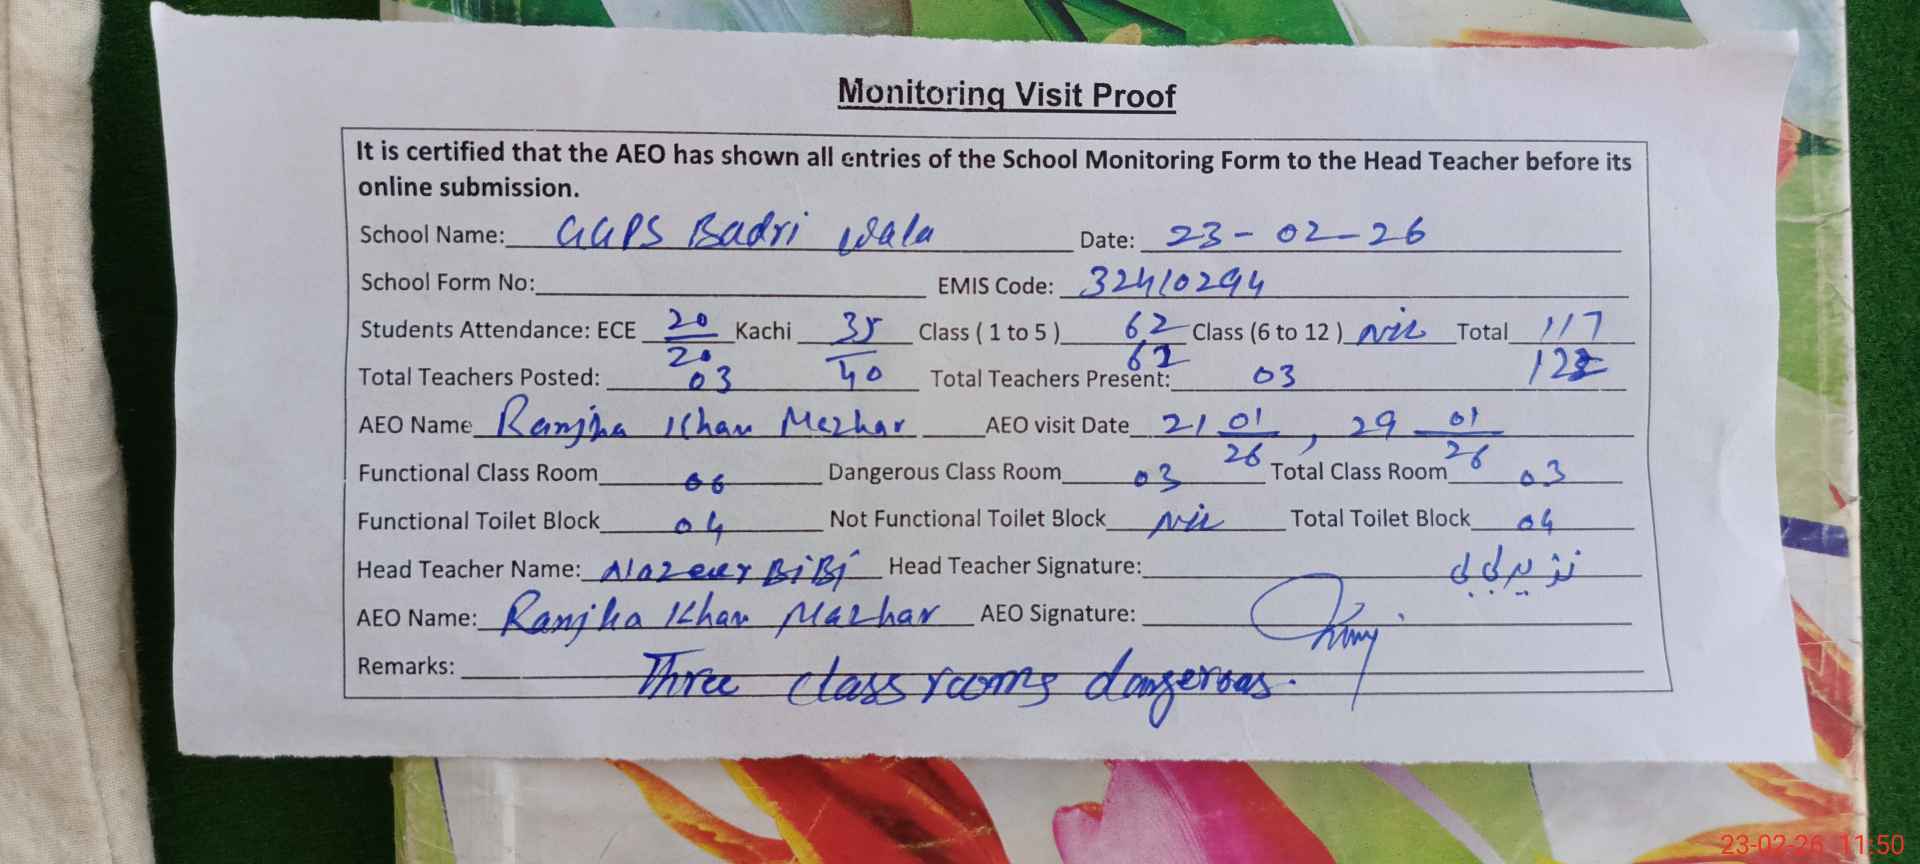 Monitoring Visit Proof
It is certified that the AEO has shown all entries of the School Monitoring Form to the Head Teacher before its
online submission.
School Name: GGPS Badri Wala Date: 23-02-26
School Form No: EMIS Code: 32410294
Students Attendance: ECE 20/20 Kachi 35/40 Class ( 1 to 5 ) 62/62 Class (6 to 12 ) Nil Total 117/122
Total Teachers Posted: 03 Total Teachers Present: 03
AEO Name Ranjha Khan Mazhar AEO visit Date 21 01/26, 29 01/26
Functional Class Room 06 Dangerous Class Room 03 Total Class Room 03
Functional Toilet Block 04 Not Functional Toilet Block Nil Total Toilet Block 04
Head Teacher Name: Nazeer BiBi Head Teacher Signature: نذیر بی بی
AEO Name: Ranjha Khan Mazhar AEO Signature:
Remarks: Three class rooms dangerous.
23-02-26 11:50